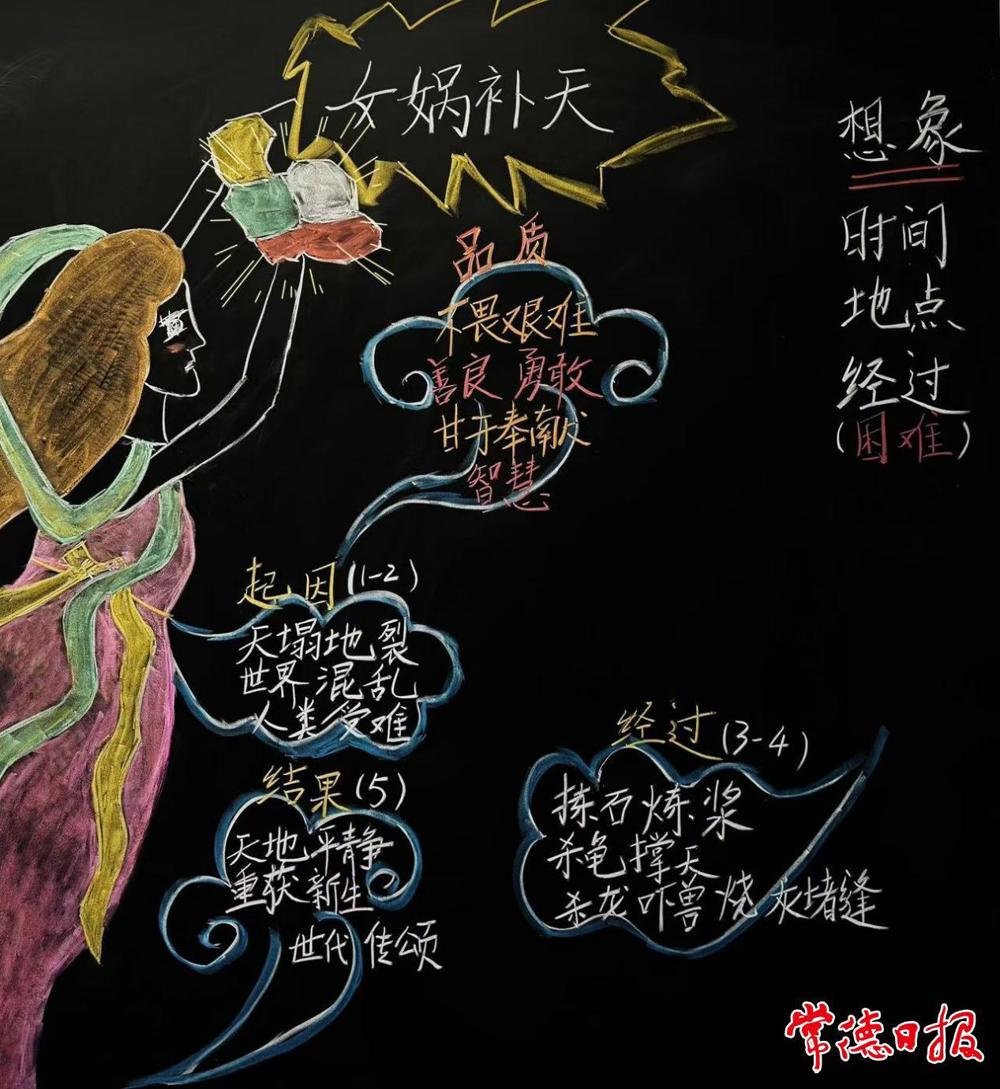 女娲补天
想象
时间
地点
经过
(困难)
品质
不畏艰难
善良 勇敢
甘于奉献
智慧
起因(1-2)
天塌地裂
世界混乱
人类受难
经过(3-4)
拣石炼浆
杀龟撑天
杀龙吓兽 烧灰堵缝
结果(5)
天地平静
重获新生
世代传颂
常德日报